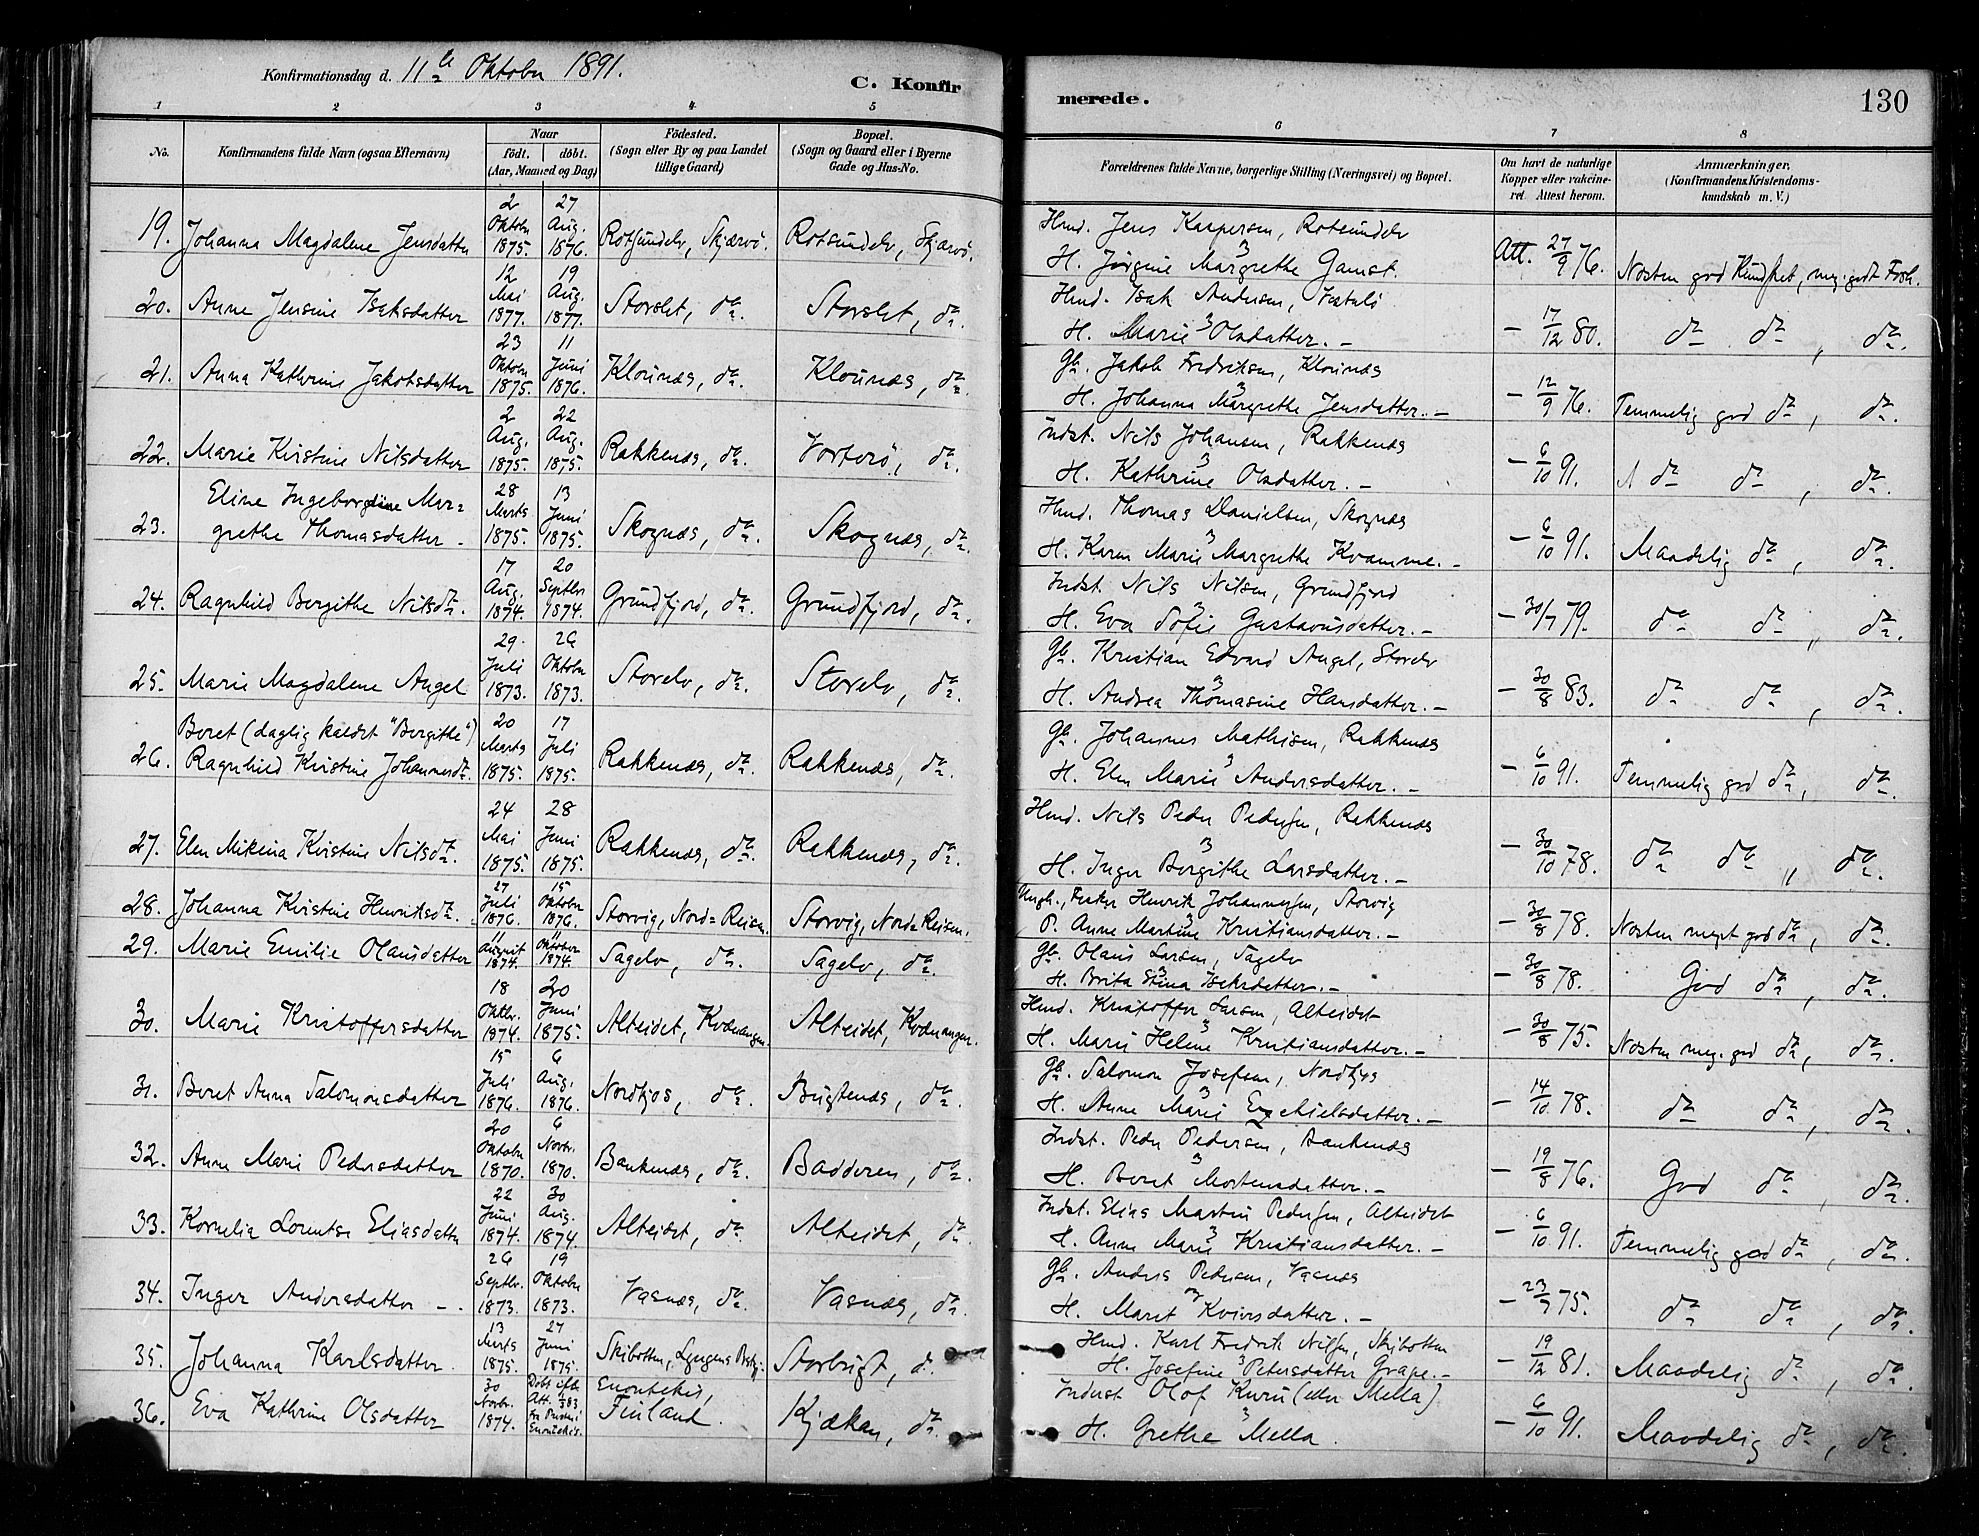 Konfirmationsdag d. 11te Oktober 1891.
C. Konfir
merede.
130
1 2 3 4 5 6 7 8
No.
Konfirmandens fulde Navn (ogsaa Efternavn)
Naar
født. døbt.
(Aar, Maaned og Dag)
Födested.
(Sogn eller By og paa Landet
tillige Gaard)
Bopæl.
(Sogn og Gaard eller i Byerne
Gade og Hus-No.
Forældrenes fulde Navne, borgerlige Stilling (Næringsvei) og Bopæl.
Om havt de naturlige
Kopper eller vakcine-
ret. Attest herom.
Anmærkninger,
(Konfirmandens Kristendoms-
kundskab m. V.)
19. Johanna Magdalene Jensdatter 2 Oktober 1875. 27 Aug. 1876. Rotsundelv, Skjærvö. Rotsundelv, Skjærvö.
Hmd. Jens Kaspersen, Rotsundelv
H. Jørgine Margrethe Gamst. Att. 27/9 76. Næsten god Kundskab, meg. godt Forh.
20. Anne Jensine Isaksdatter 12 Mai 1877. 19 Aug. 1877. Storslet, do. Storslet, do.
Hmd. Isak Andersen,
H. Marie Olsdatter. – – 17/12 80. do do, do.
21. Anna Kathrine Jakobsdatter 23 Oktober 1875. 11 Juni 1876. Klounæs, do. Klounæs, do.
Gb. Jakob Fredriksen, Klounæs
H. Johanna Margrethe Jensdatter. – – 12/9 76. Temmelig god do, do.
22. Marie Kristine Nilsdatter 2 Aug. 1875. 22 Aug. 1875. Rakkenæs, do. Vorterö, do.
Indst. Nils Johansen, Rakkenæs
H. Kathrine Olsdatter. – – 6/10 91. do do, do.
23. Eline Ingeborgdine Mar=
grethe Thomasdatter – 28 Marts 1875. 13 Juni 1875. Skognæs, do. Skognæs, do.
Hmd. Thomas Danielsen, Skognæs
H. Karen Marie Margrethe Kvamme. – – 6/10 91. Maadelig do, do.
24. Ragnhild Bergithe Nilsdr. 17 Aug. 1874. 20 Septbr. 1874. Grundfjord, do. Grundfjord, do.
Indst. Nils Nilsen, Grundfjord
H. Eva Sofie Gustavusdatter. – – 30/7 79. do do, do.
25. Marie Magdalene Angel 29 Juli 1873. 26 Oktober 1873. Storelv, do. Storelv, do.
Gb. Kristian Edvard Angel, Storelv
H. Andrea Thomasine Hansdatter. – – 30/8 83. do do, do.
26. Beret (daglig kaldet "Bergithe")
Ragnhild Kristine Johannesdr. 20 Marts 1875. 17 Juli 1875. Rakkenæs, do. Rakkenæs, do.
Gb. Johannes Mathisen, Rakkenæs
H. Elen Marie Andersdatter. – – 6/10 91. Temmelig god do, do.
27. Elen Mikina Kristine Nilsdr. 24 Mai 1875. 28 Juni 1875. Rakkenæs, do. Rakkenæs, do.
Hmd. Nils Peder Pedersen, Rakkenæs
H. Inger Bergithe Larsdatter. – – 30/10 78. do do, do.
28. Johanna Kristine Henriksdr. 27 Juli 1876. 15 Oktober 1876. Storvig, Nord=Reisen. Storvig, Nord=Reisen.
Ungk., Fisker Henrik Johannesen, Storvig
P. Anne Martine Kristiansdatter. – – 30/8 78. Næsten meget god do, do.
29. Marie Emilie Olausdatter 11 August 1874. 11 Oktober 1874. Sagelv, do. Sagelv, do.
Gb. Olaus Larsen, Sagelv
H. Brita Stina Isaksdatter. – – 30/8 78. God do, do.
30. Marie Kristoffersdatter 18 Oktbr. 1874. 20 Juni 1875. Alteidet, Kvænangen. Alteidet, Kvænangen.
Hmd. Kristoffer Larsen, Alteidet
H. Marie Helene Kristiansdatter. – – 30/8 75. Næsten meg. god do, do.
31. Beret Anna Salomonsdatter 15 Juli 1876. 6 Aug. 1876. Nordkjos, do. Bugtenæs, do.
Gb. Salomon Josefsen, Nordkjos
H. Anne Marie Ezechielsdatter. – – 14/10 78. do do, do.
32. Anne Marie Pedersdatter 20 Oktober 1870. 6 Novbr. 1870. Bankenæs, do. Badderen, do.
Indst. Peder Pedersen, Bankenæs
H. Beret Mortensdatter. – – 19/8 76. God do, do.
33. Kornelia Lorentse Eliasdatter 22 Juni 1874. 30 Aug. 1874. Alteidet, do. Alteidet, do.
Indst. Elias Martin Pedersen, Alteidet
H. Anne Marie Kristiansdatter. – – 6/10 91. Temmelig god do, do.
34. Inger Andersdatter – 26 Septbr. 1873. 19 Oktober 1873. Vasnæs, do. Vasnæs, do.
Gb. Anders Pedersen, Vasnæs
H. Maret Kvivesdatter. – – 23/7 75. do do, do.
35. Johanna Karlsdatter 13 Marts 1875. 27 Juni 1875. Skibotten, Lyngens Prstgj: Storbugt, do.
Hmd. Karl Fredrik Nilsen, Skibotten
H. Josefine Petersdatter Grape. – – 19/12 81. Maadelig do, do.
36. Eva Kathrine Olsdatter 30 Novbr. 1874. Døbt ifl. Att. fra Præsten i Enontekis. Enontekis, Finland. Kjækan, do.
Inderst Olof Kuru (eller Mella)
H. Grethe Mella. – 6/10 91. Maadelig do, do.